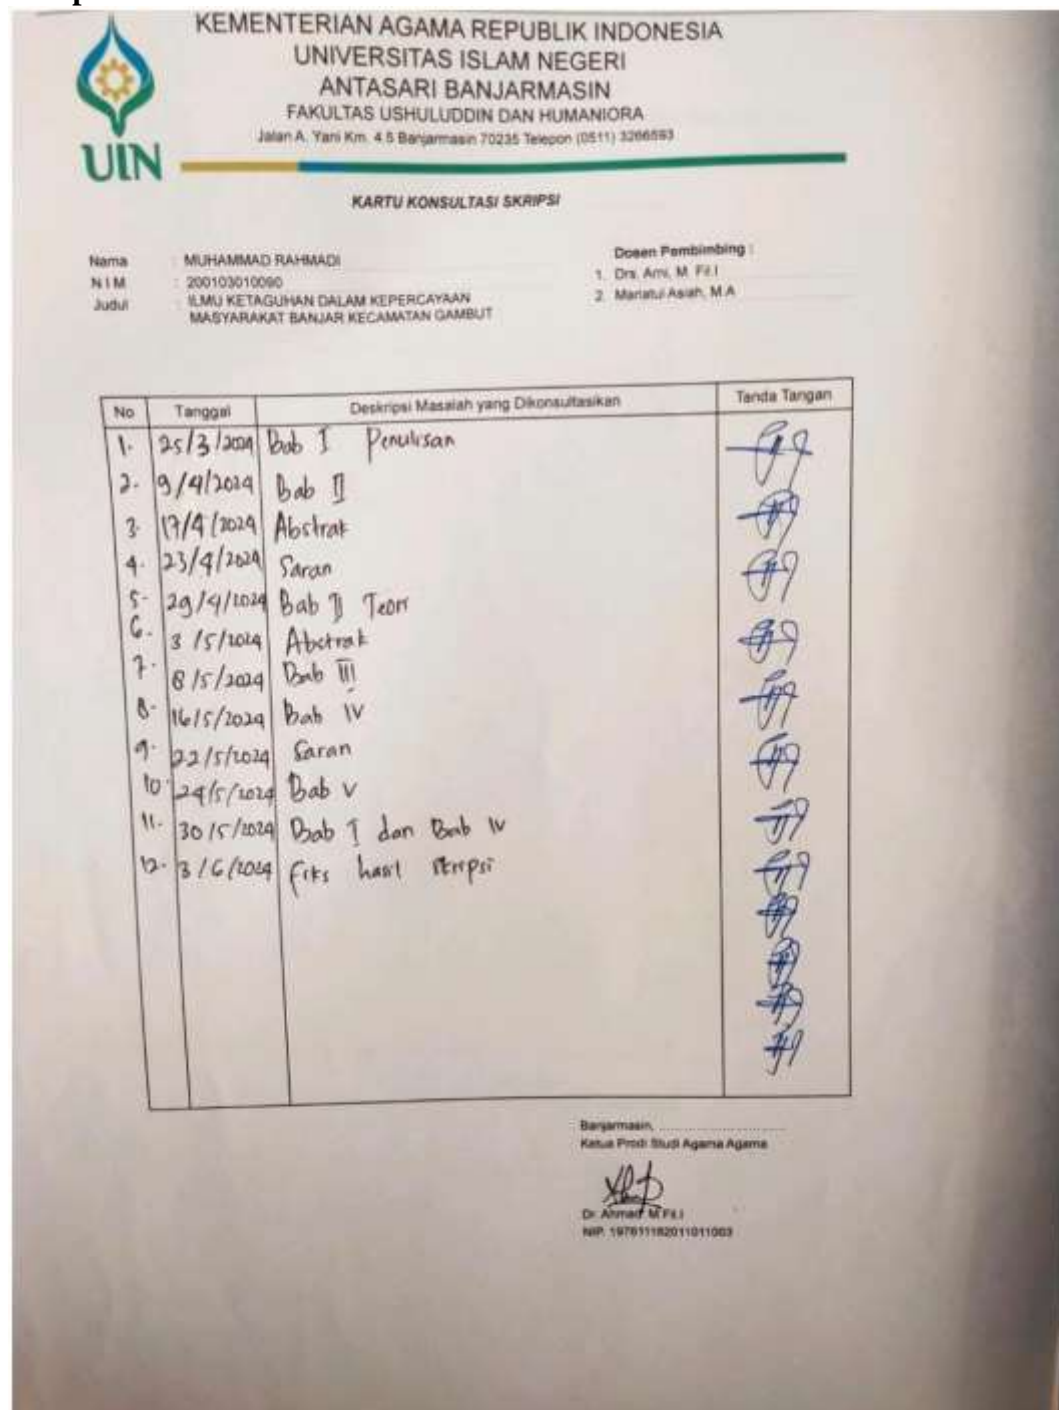 KEMENTERIAN AGAMA REPUBLIK INDONESIA
UNIVERSITAS ISLAM NEGERI
ANTASARI BANJARMASIN
FAKULTAS USHULUDDIN DAN HUMANIORA
Jalan A. Yani Km. 4.5 Banjarmasin 70235 Telepon (0511) 3266593
UIN
KARTU KONSULTASI SKRIPSI
Nama : MUHAMMAD RAHMADI
N I M : 200103010090
Judul : ILMU KETAGUHAN DALAM KEPERCAYAAN
MASYARAKAT BANJAR KECAMATAN GAMBUT
Dosen Pembimbing :
1. Drs. Arni, M. Fil.I
2. Mariatul Asiah, M.A
No Tanggal Deskripsi Masalah yang Dikonsultasikan Tanda Tangan
1. 25/3/2024 Bab I Penulisan
2. 9/4/2024 Bab II
3. 17/4/2024 Abstrak
4. 23/4/2024 Saran
5. 29/4/2024 Bab II Teori
6. 3/5/2024 Abstrak
7. 8/5/2024 Bab III
8. 16/5/2024 Bab IV
9. 22/5/2024 Saran
10. 24/5/2024 Bab V
11. 30/5/2024 Bab I dan Bab IV
12. 3/6/2024 fiks hasil skripsi
Banjarmasin, ..............................
Ketua Prodi Studi Agama Agama
Dr. Ahmad, M.Fil.I
NIP. 197611182011011003